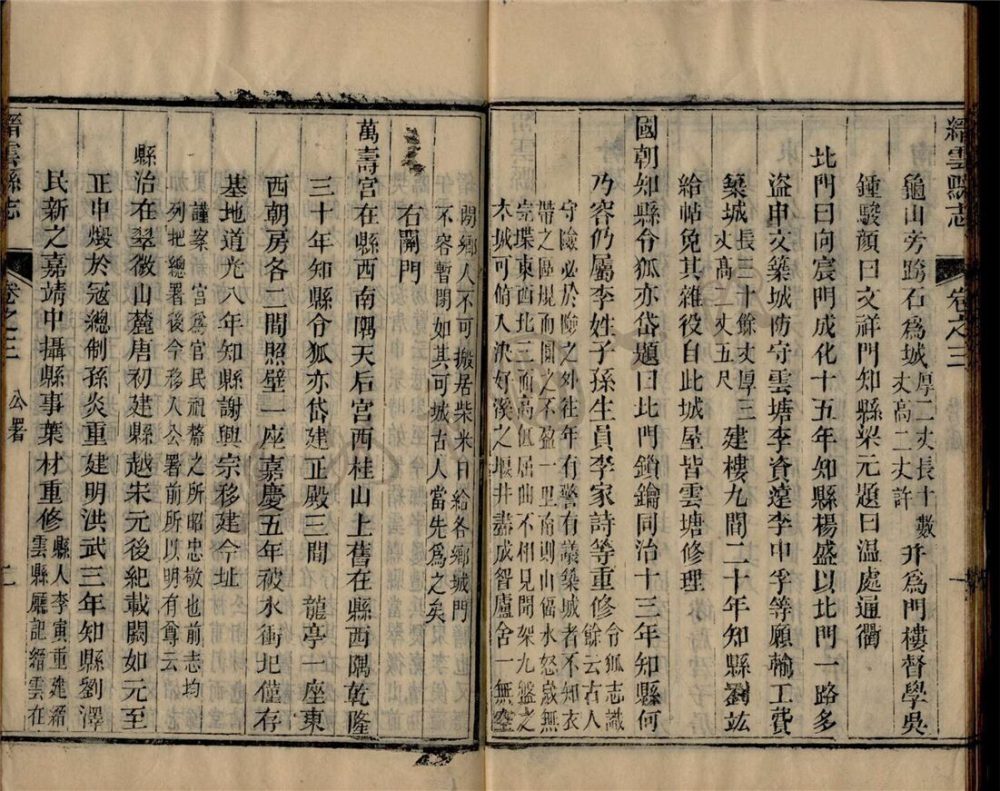 縉雲縣志 卷之三
龜山旁跨石爲城厚二丈長十數丈高二丈許幷爲門樓督學吳
鍾駿顏曰文祥門知縣梁元題曰温處通衢
北門曰向宸門成化十五年知縣楊盛以北門一路多
盗申文築城防守雲塘李資遠李申孚等願輸工費
築城長三十餘丈厚三丈高二丈五尺建樓九間二十年知縣劉竑
給帖免其雜役自此城屋皆雲塘修理
國朝知縣令狐亦岱題曰北門鎖鑰同治十三年知縣何
乃容仍屬李姓子孫生員李家詩等重修令狐志識餘云古人
守險必於險之外往年有警有議築城者不知衣
帶之區規而圍之不盈一里南則山偪水怒歲無
完堞東西北三面高低屈曲不相見聞架九盤之
木城可俯入決好溪之堰井盡成智廬舍一無空
閒鄉人不可搬居柴米日給各鄉城門
不容暫閉如其可城古人當先爲之矣
右關門
萬壽宫在縣西南隅天后宫西桂山上舊在縣西隅乾隆
三十年知縣令狐亦岱建正殿三間 龍亭一座東
西朝房各二間照壁一座嘉慶五年被水衝圮僅存
基地道光八年知縣謝興宗移建今址
謹案 宫爲官民祝釐之所昭忠敬也前志均
列把總署後今移入公署前所以明有尊云
縣治在翠微山麓唐初建縣越宋元後紀載闕如元至
正中燬於寇總制孫炎重建明洪武三年知縣劉澤
民新之嘉靖中攝縣事葉材重修縣人李寅重建縉雲縣廳記縉雲在
縉雲縣志 卷之三 公署 二